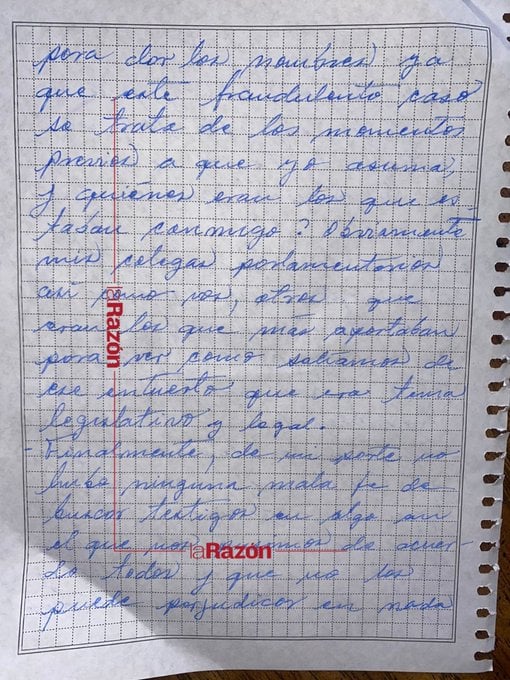 para dar los nombres ya
que este fraudulento caso
se trata de los momentos
previos a que yo asuma,
y quiénes eran los que es-
taban conmigo? Obviamente
mis colegas parlamentarios
así como vos, otros que
eran los que más aportaban
para ver como salíamos de
ese entuerto que era tema
legislativo y legal.
- Finalmente, de mi parte no
hubo ninguna mala fe de
buscar testigos en algo en
el que nos pusimos de acuer-
do todos y que no los
puede perjudicar en nada
la Razón
la Razón